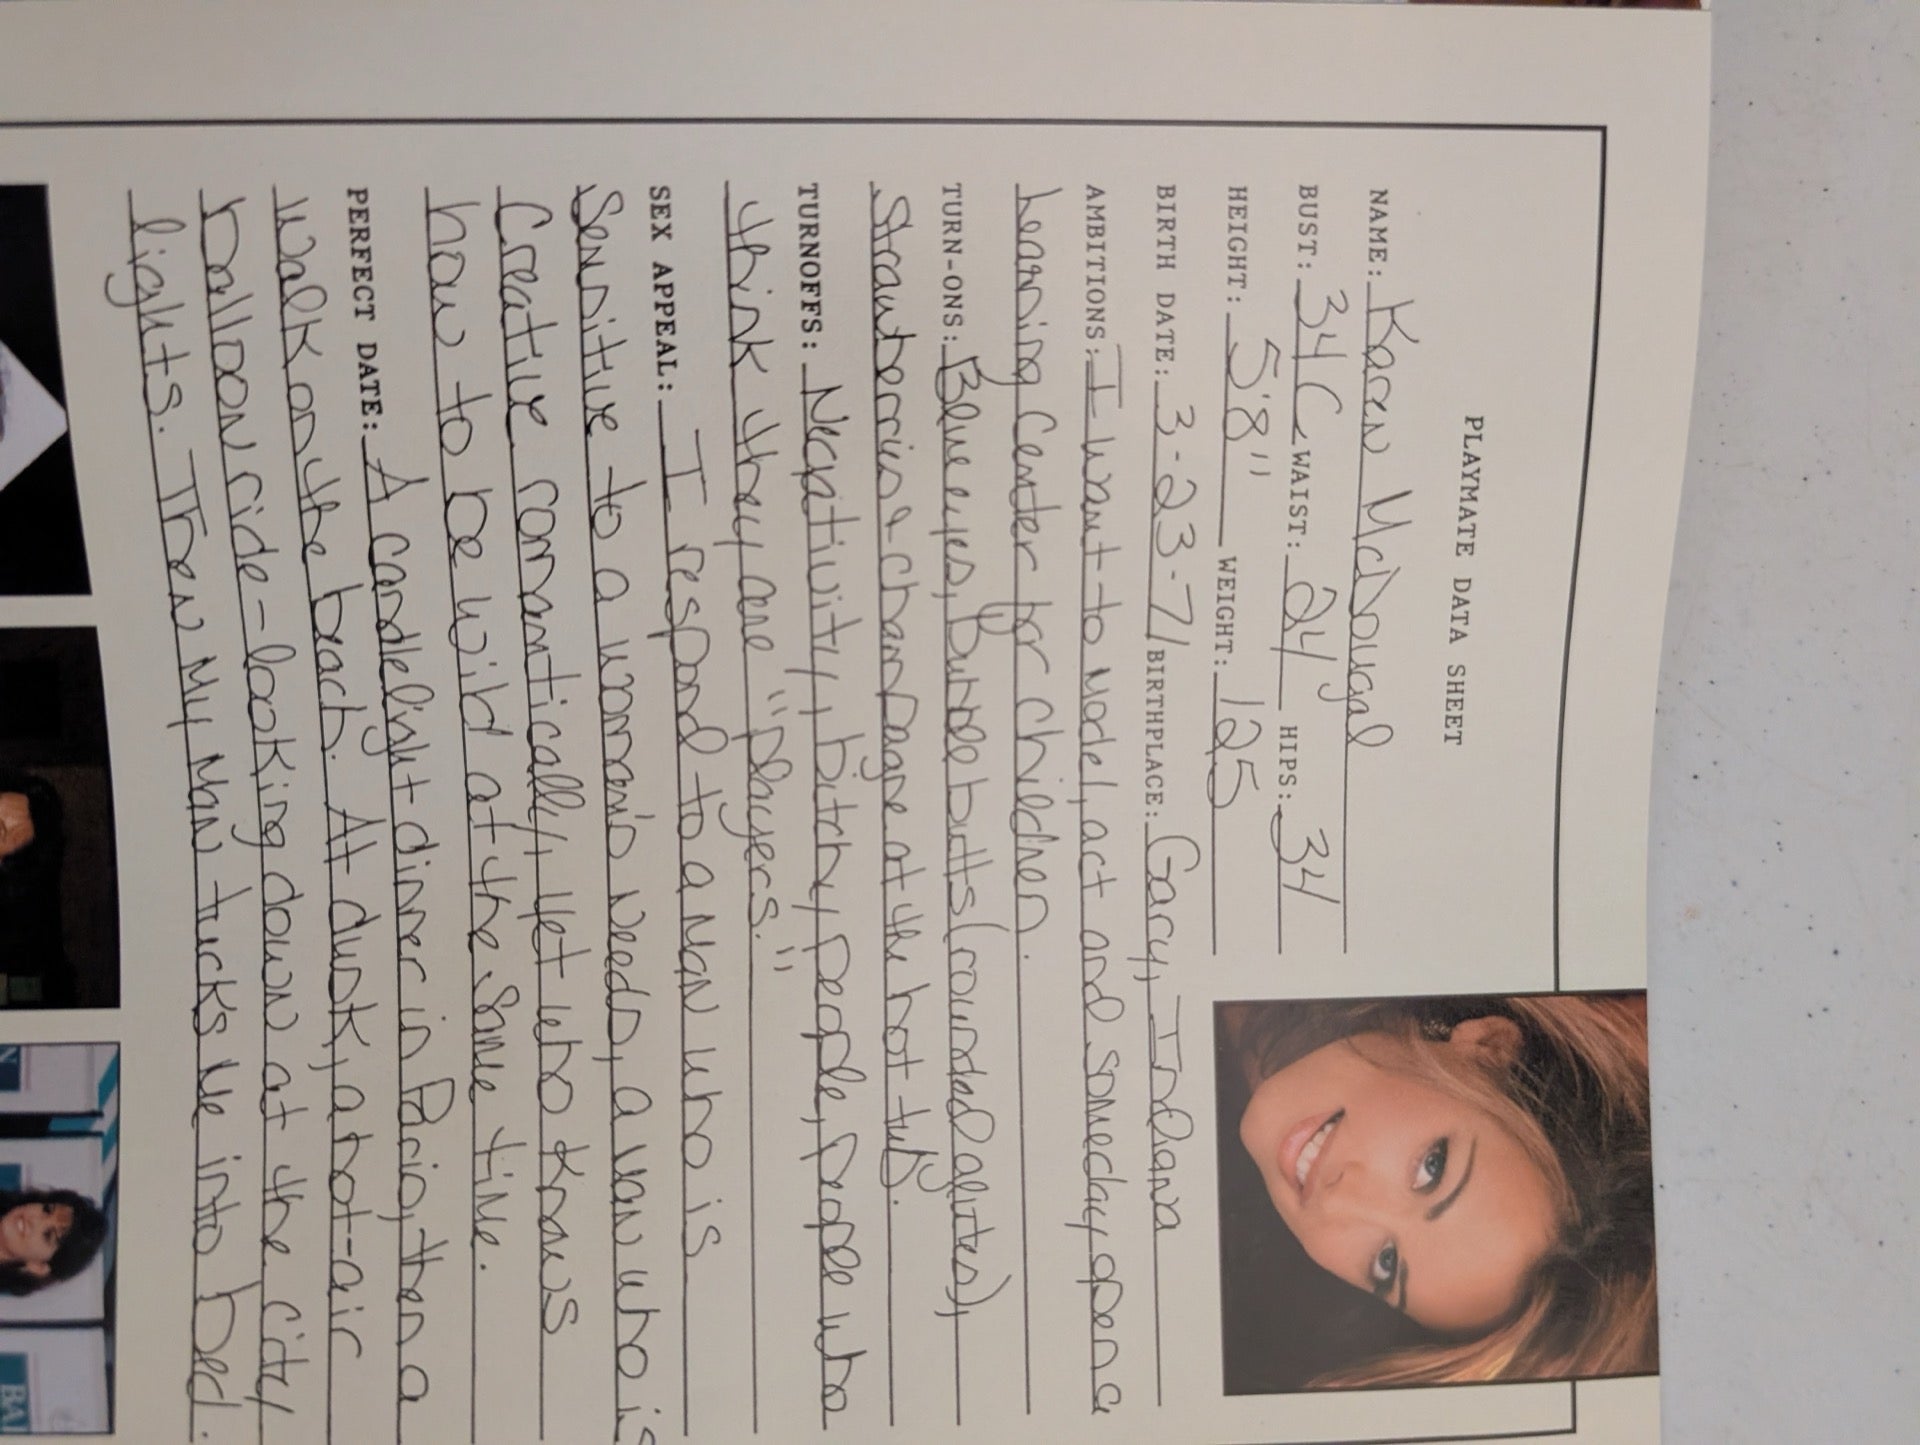 PLAYMATE DATA SHEET
NAME: Karen McDougal
BUST: 34C WAIST: 24 HIPS: 34
HEIGHT: 5'8" WEIGHT: 125
BIRTH DATE: 3-23-71 BIRTHPLACE: Gary, Indiana
AMBITIONS: I want to Model, act and someday open a
learning Center for children.
TURN-ONS: Blue eyes, Bubble butts (rounded glutes),
Strawberries & champagne at the hot tub.
TURNOFFS: Negativity, bitchy people, people who
think they are "players."
SEX APPEAL: I respond to a man who is
Sensitive to a woman's needs, a man who is
Creative romantically, yet who knows
how to be wild at the same time.
PERFECT DATE: A candlelight dinner in Paris, then a
walk on the beach. At dusk, a hot-air
balloon ride-looking down at the city
lights. Then My Man tucks me into bed.
N
BAI